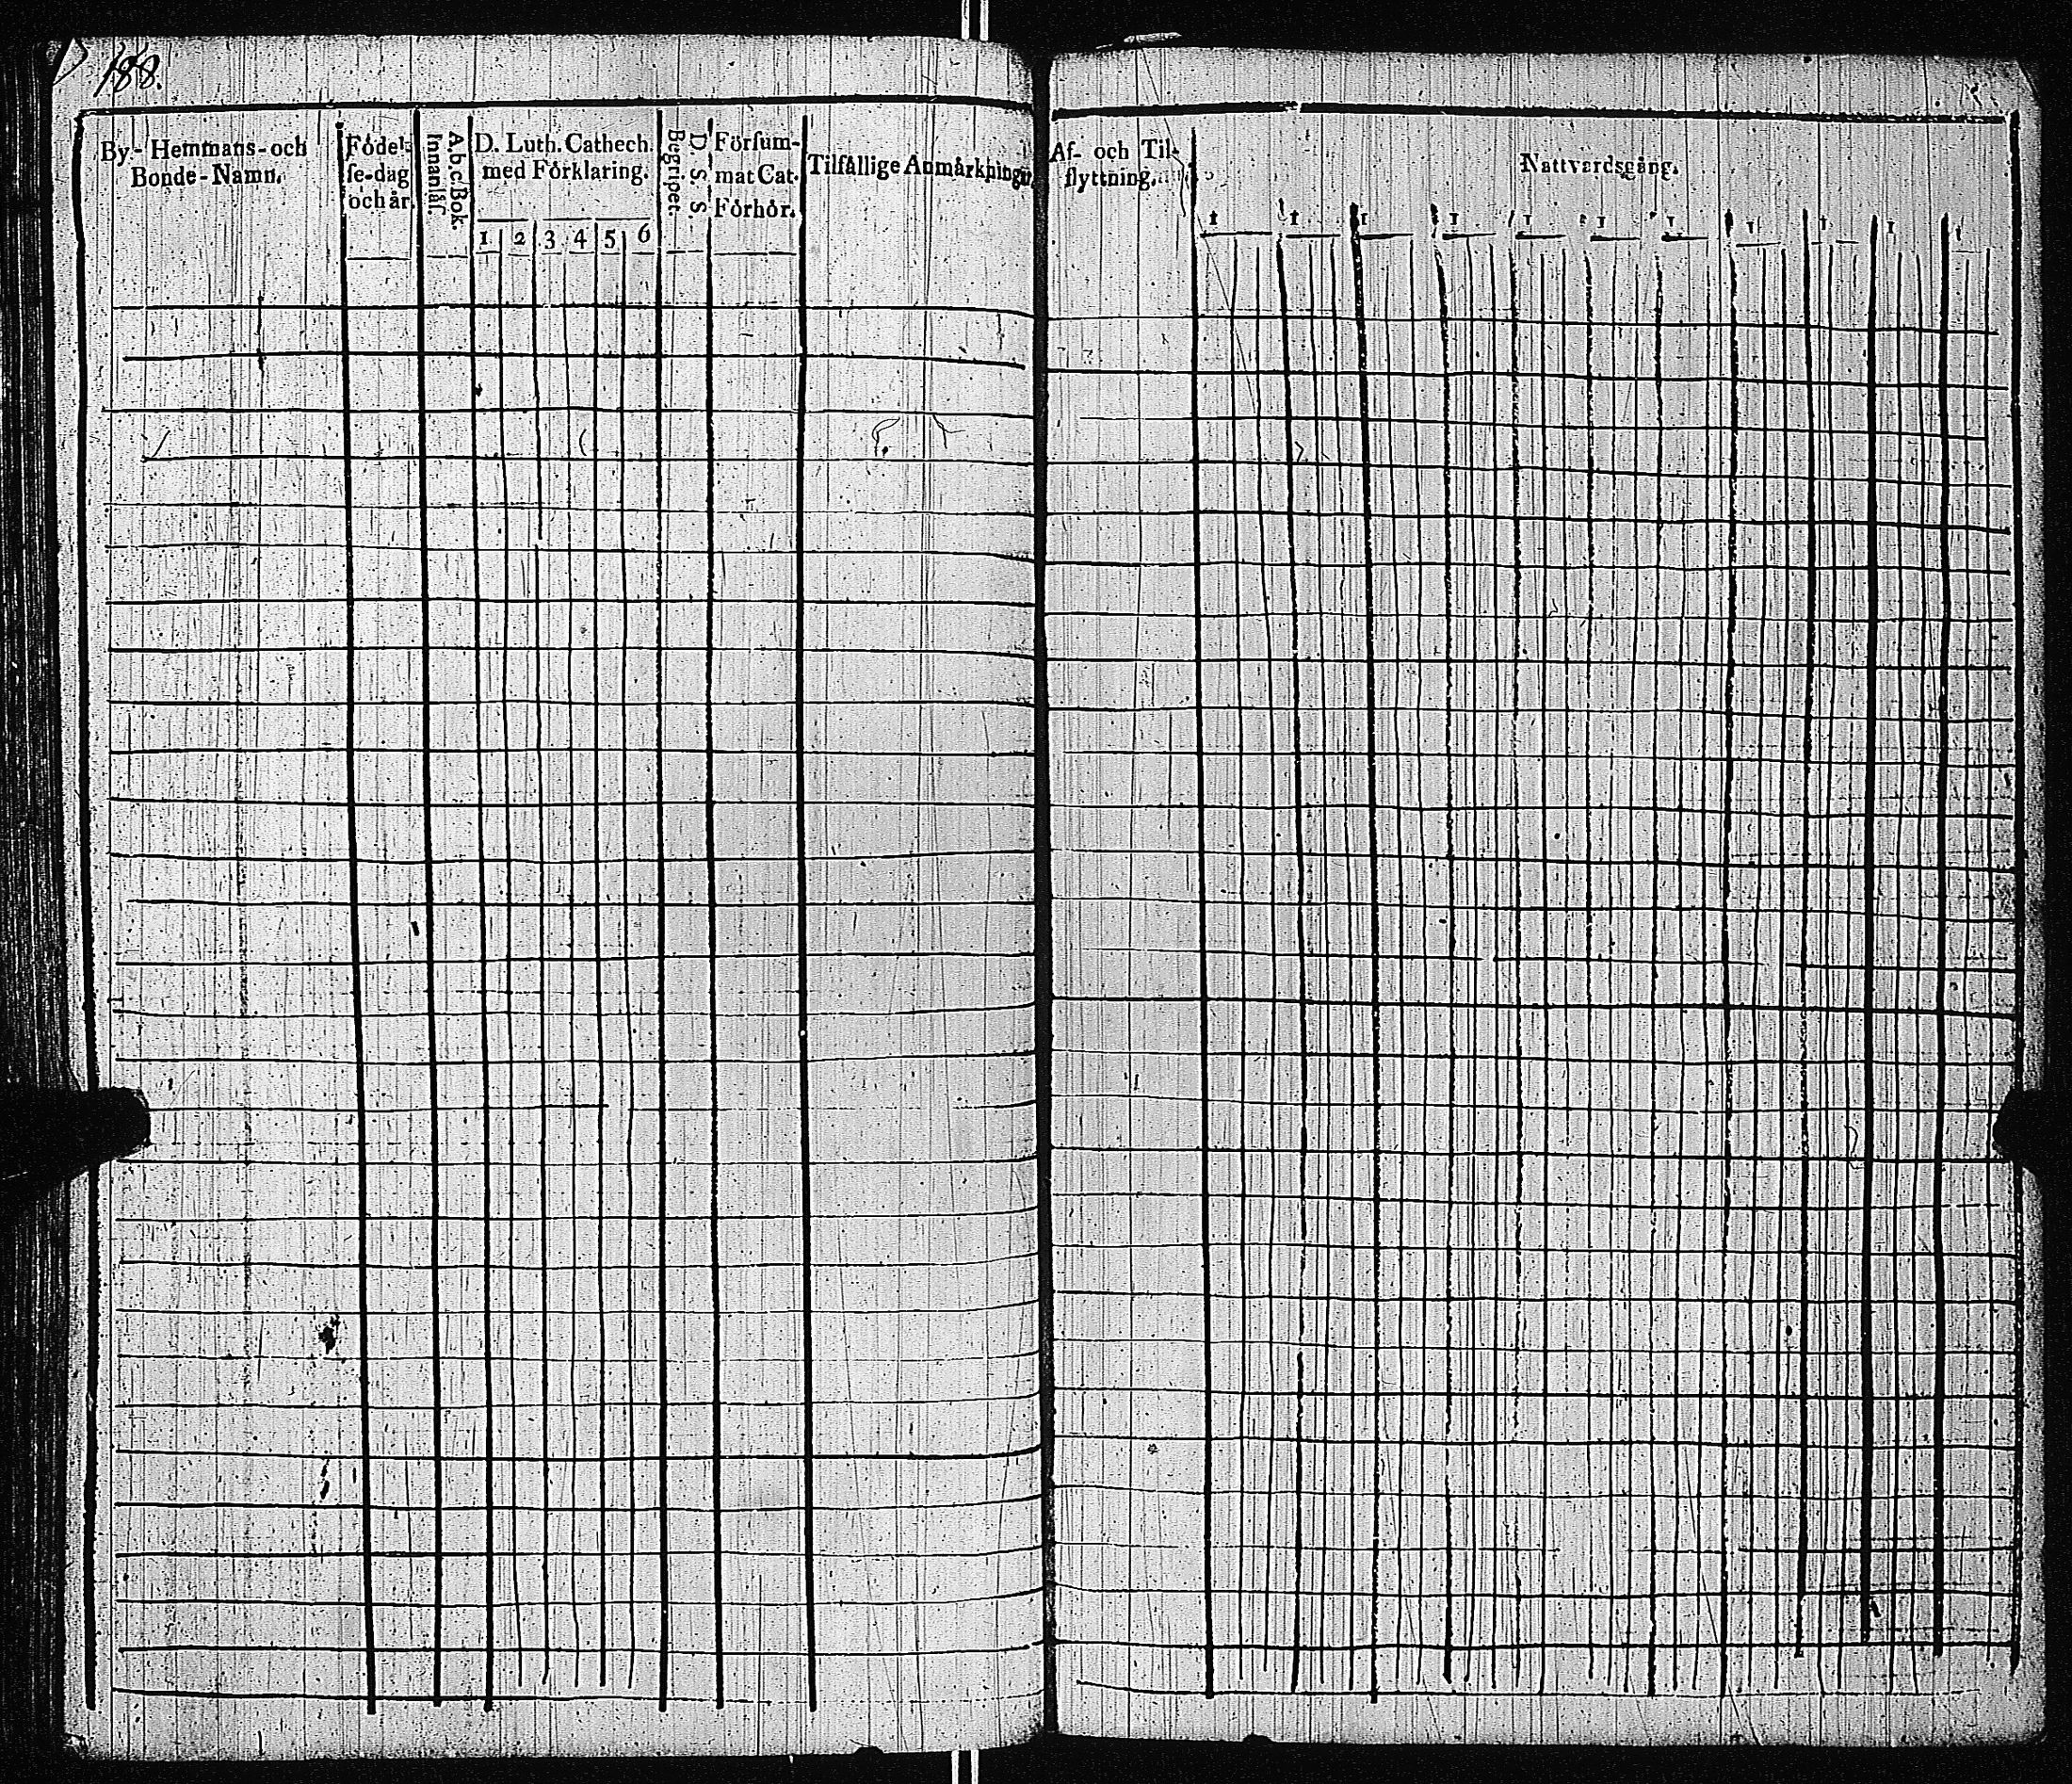 188.
By- Hemmans- och
Bonde-Namn.
Födel-
ſe-dag
och år.
A.b.c Bok.
Innanläſ.
D. Luth. Cathech.
med Förklaring.
1 2 3 4 5 6
D. S. S.
Begripet.
Förſum-
mat Cat.
Förhör.
Tilfällige Anmärkningar
Af- och Til-
flyttning.
Nattvardsgång.
1 1 1 1 1 1 1 1 1 1 1